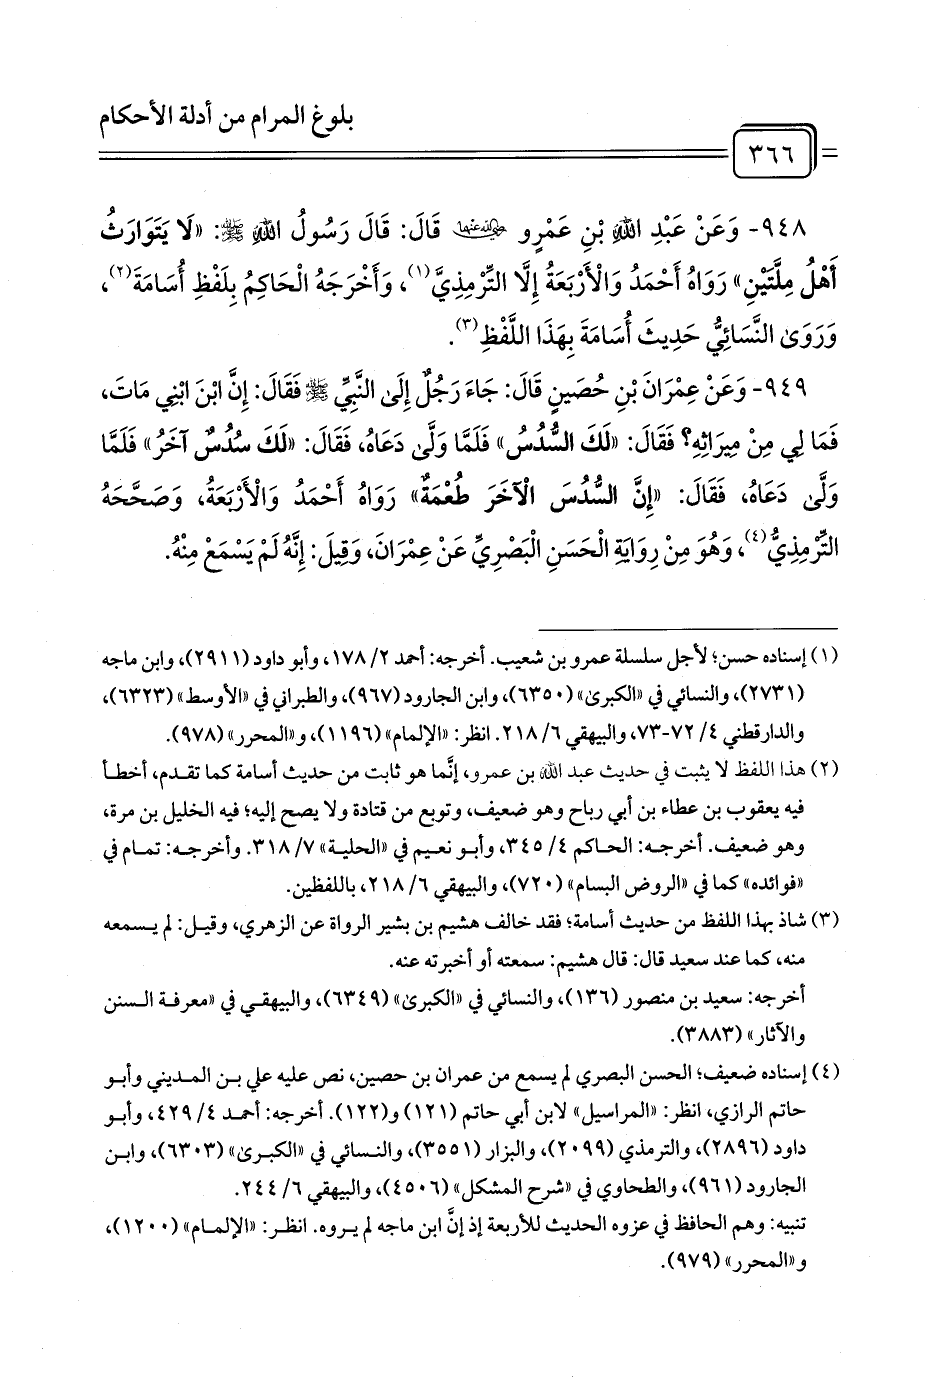 بلوغ المرام من أدلة الأحكام
٣٦٦
٩٤٨- وَعَنْ عَبْدِ اللهِ بْنِ عَمْرٍو رضي الله عنهما قَالَ: قَالَ رَسُولُ اللهِ ﷺ: «لَا يَتَوَارَثُ
أَهْلُ مِلَّتَيْنِ» رَوَاهُ أَحْمَدُ وَالْأَرْبَعَةُ إِلَّا التِّرْمِذِيَّ(١)، وَأَخْرَجَهُ الْحَاكِمُ بِلَفْظِ أُسَامَةَ(٢)،
وَرَوَى النَّسَائِيُّ حَدِيثَ أُسَامَةَ بِهَذَا اللَّفْظِ(٣).
٩٤٩- وَعَنْ عِمْرَانَ بْنِ حُصَيْنٍ قَالَ: جَاءَ رَجُلٌ إِلَى النَّبِيِّ ﷺ فَقَالَ: إِنَّ ابْنَ ابْنِي مَاتَ،
فَمَا لِي مِنْ مِيرَاثِهِ؟ فَقَالَ: «لَكَ السُّدُسُ» فَلَمَّا وَلَّى دَعَاهُ، فَقَالَ: «لَكَ سُدُسٌ آخَرُ» فَلَمَّا
وَلَّى دَعَاهُ، فَقَالَ: «إِنَّ السُّدُسَ الْآخَرَ طُعْمَةٌ» رَوَاهُ أَحْمَدُ وَالْأَرْبَعَةُ، وَصَحَّحَهُ
التِّرْمِذِيُّ(٤)، وَهُوَ مِنْ رِوَايَةِ الْحَسَنِ الْبَصْرِيِّ عَنْ عِمْرَانَ، وَقِيلَ: إِنَّهُ لَمْ يَسْمَعْ مِنْهُ.
(١) إسناده حسن؛ لأجل سلسلة عمرو بن شعيب. أخرجه: أحمد ٢/ ١٧٨، وأبو داود (٢٩١١)، وابن ماجه
(٢٧٣١)، والنسائي في «الكبرى» (٦٣٥٠)، وابن الجارود (٩٦٧)، والطبراني في «الأوسط» (٦٣٢٣)،
والدارقطني ٤/ ٧٢-٧٣، والبيهقي ٦/ ٢١٨. انظر: «الإلمام» (١١٩٦)، و«المحرر» (٩٧٨).
(٢) هذا اللفظ لا يثبت في حديث عبد الله بن عمرو، إنَّما هو ثابت من حديث أسامة كما تقدم، أخطأ
فيه يعقوب بن عطاء بن أبي رباح وهو ضعيف، وتوبع من قتادة ولا يصح إليه؛ فيه الخليل بن مرة،
وهو ضعيف. أخرجه: الحاكم ٤/ ٣٤٥، وأبو نعيم في «الحلية» ٧/ ٣١٨. وأخرجه: تمام في
«فوائده» كما في «الروض البسام» (٧٢٠)، والبيهقي ٦/ ٢١٨، باللفظين.
(٣) شاذ بهذا اللفظ من حديث أسامة؛ فقد خالف هشيم بن بشير الرواة عن الزهري، وقيل: لم يسمعه
منه، كما عند سعيد قال: قال هشيم: سمعته أو أخبرته عنه.
أخرجه: سعيد بن منصور (١٣٦)، والنسائي في «الكبرى» (٦٣٤٩)، والبيهقي في «معرفة السنن
والآثار» (٣٨٨٣).
(٤) إسناده ضعيف؛ الحسن البصري لم يسمع من عمران بن حصين، نص عليه علي بن المديني وأبو
حاتم الرازي، انظر: «المراسيل» لابن أبي حاتم (١٢١) و(١٢٢). أخرجه: أحمد ٤/ ٤٢٩، وأبو
داود (٢٨٩٦)، والترمذي (٢٠٩٩)، والبزار (٣٥٥١)، والنسائي في «الكبرى» (٦٣٠٣)، وابن
الجارود (٩٦١)، والطحاوي في «شرح المشكل» (٤٥٠٦)، والبيهقي ٦/ ٢٤٤.
تنبيه: وهم الحافظ في عزوه الحديث للأربعة إذ إنَّ ابن ماجه لم يروه. انظر: «الإلمام» (١٢٠٠)،
و«المحرر» (٩٧٩).